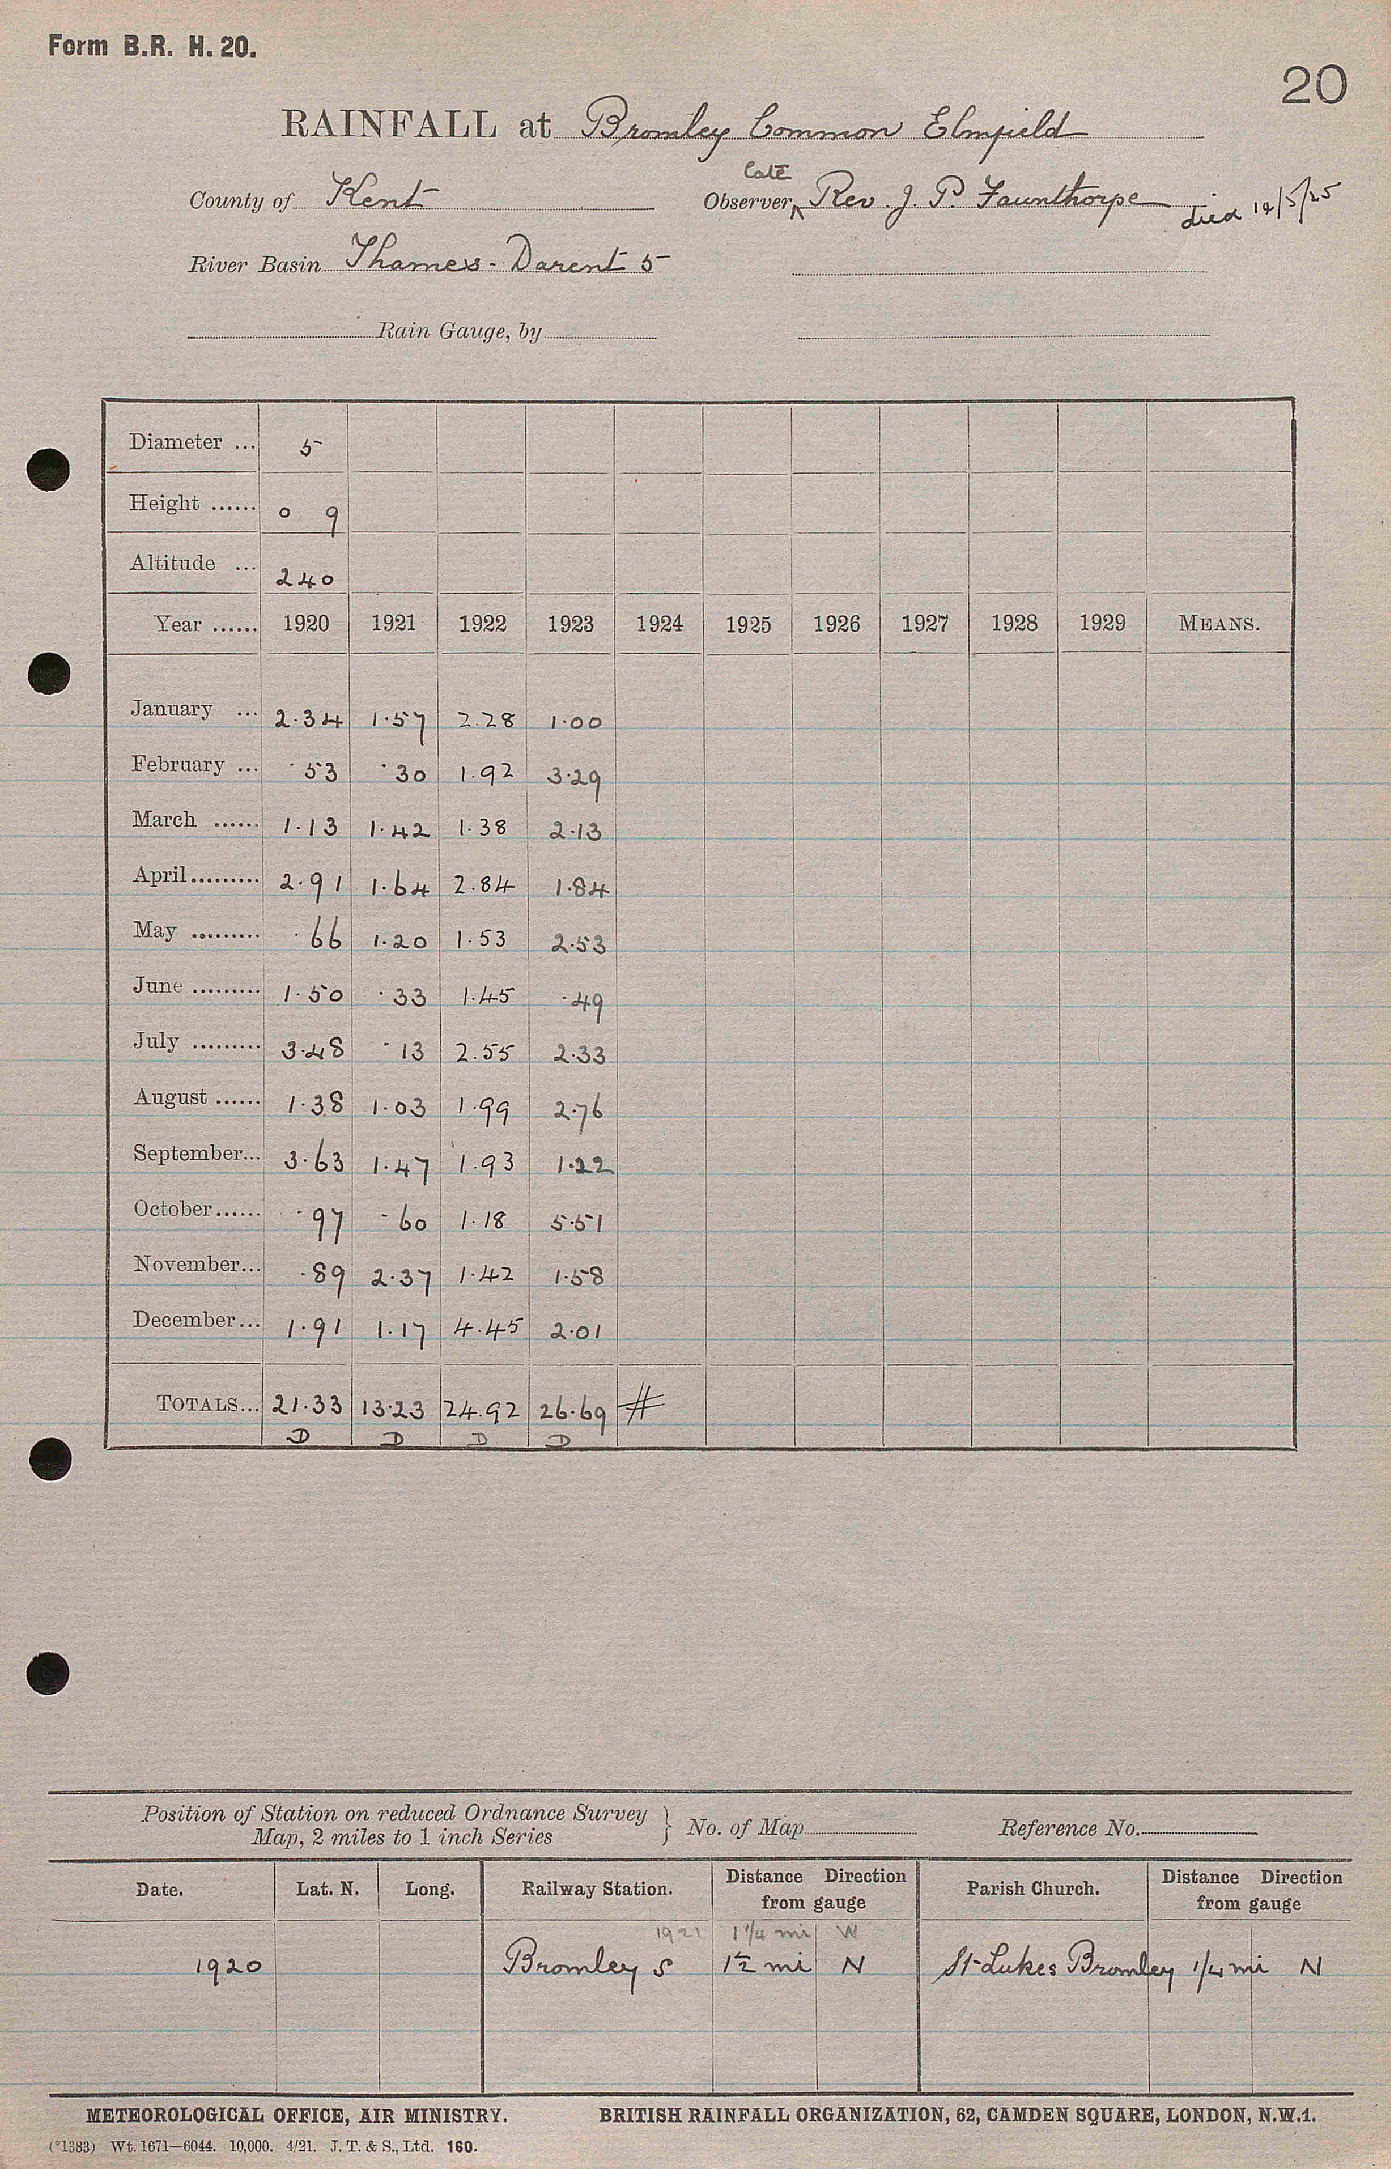 Form B.R. H. 20.
20
RAINFALL at Bromley Common Elmfield
late
County of Kent Observer ^ Rev. J. P. Faunthorpe died 14/5/25
River Basin Thames - Darent 5
Rain Gauge, by
Diameter ... 5
Height ...... 0 9
Altitude ... 240
Year ...... 1920 1921 1922 1923 1924 1925 1926 1927 1928 1929 MEANS.
January ... 2.34 1.57 2.28 1.00
February ... .53 .30 1.92 3.29
March ...... 1.13 1.42 1.38 2.13
April......... 2.91 1.64 2.84 1.84
May ......... .66 1.20 1.53 2.53
June ......... 1.50 .33 1.45 .49
July ......... 3.48 .13 2.55 2.33
August ...... 1.38 1.03 1.99 2.76
September... 3.63 1.47 1.93 1.22
October...... .97 .60 1.18 5.51
November... .89 2.37 1.42 1.58
December... 1.91 1.17 4.45 2.01
TOTALS... 21.33 13.23 24.92 26.69 #
D D D D
Position of Station on reduced Ordnance Survey
Map, 2 miles to 1 inch Series } No. of Map Reference No.
Date. Lat. N. Long. Railway Station. Distance Direction from gauge Parish Church. Distance Direction from gauge
1921 1 1/4 mi W
1920 Bromley S 1 1/2 mi N St Lukes Bromley 1/4 mi N
METEOROLOGICAL OFFICE, AIR MINISTRY. BRITISH RAINFALL ORGANIZATION, 62, CAMDEN SQUARE, LONDON, N.W.1.
(*1383) Wt. 1671—6044. 10,000. 4/21. J. T. & S., Ltd. 160.